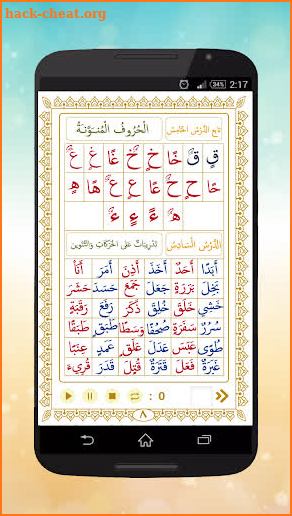 hack-cheat.org
34% 2:17
تابع الدَّرْسُ الخَامِسُ الْحُرُوفُ الْمُنَوَّنَةُ
قٍ قٌ خًا خٍ خٌ غًا غٍ غٌ
حًا حٍ حٌ عًا عٍ عٌ هًا هٍ
هٌ ءً ءٍ ءٌ
الدَّرْسُ السَّادِسُ تَدْرِيبَاتٌ عَلَى الحَرَكَاتِ وَالتَّنْوِينِ
أَبَدًا أَحَدٌ أَخَذَ أَذِنَ أَمَرَ أَنَاْ
بَخِلَ بَرَرَةٍ جَعَلَ جَمَعَ حَسَدَ حَشَرَ
خَشِيَ خَلَقَ خُلِقَ ذَكَرَ رَفَعَ رَقَبَةٍ
سُرُرٌ سَفَرَةٍ صُحُفًا وَسَطًا طَبَقٍ طَبَقًا
طُوًى عَبَسَ عَدَلَ عَلَقٍ عَمَدٍ عِنَبًا
غَبَرَةٌ فَعَلَ قَتَرَةٌ قُتِلَ قَدَرَ قُرِئَ
: 0
٨